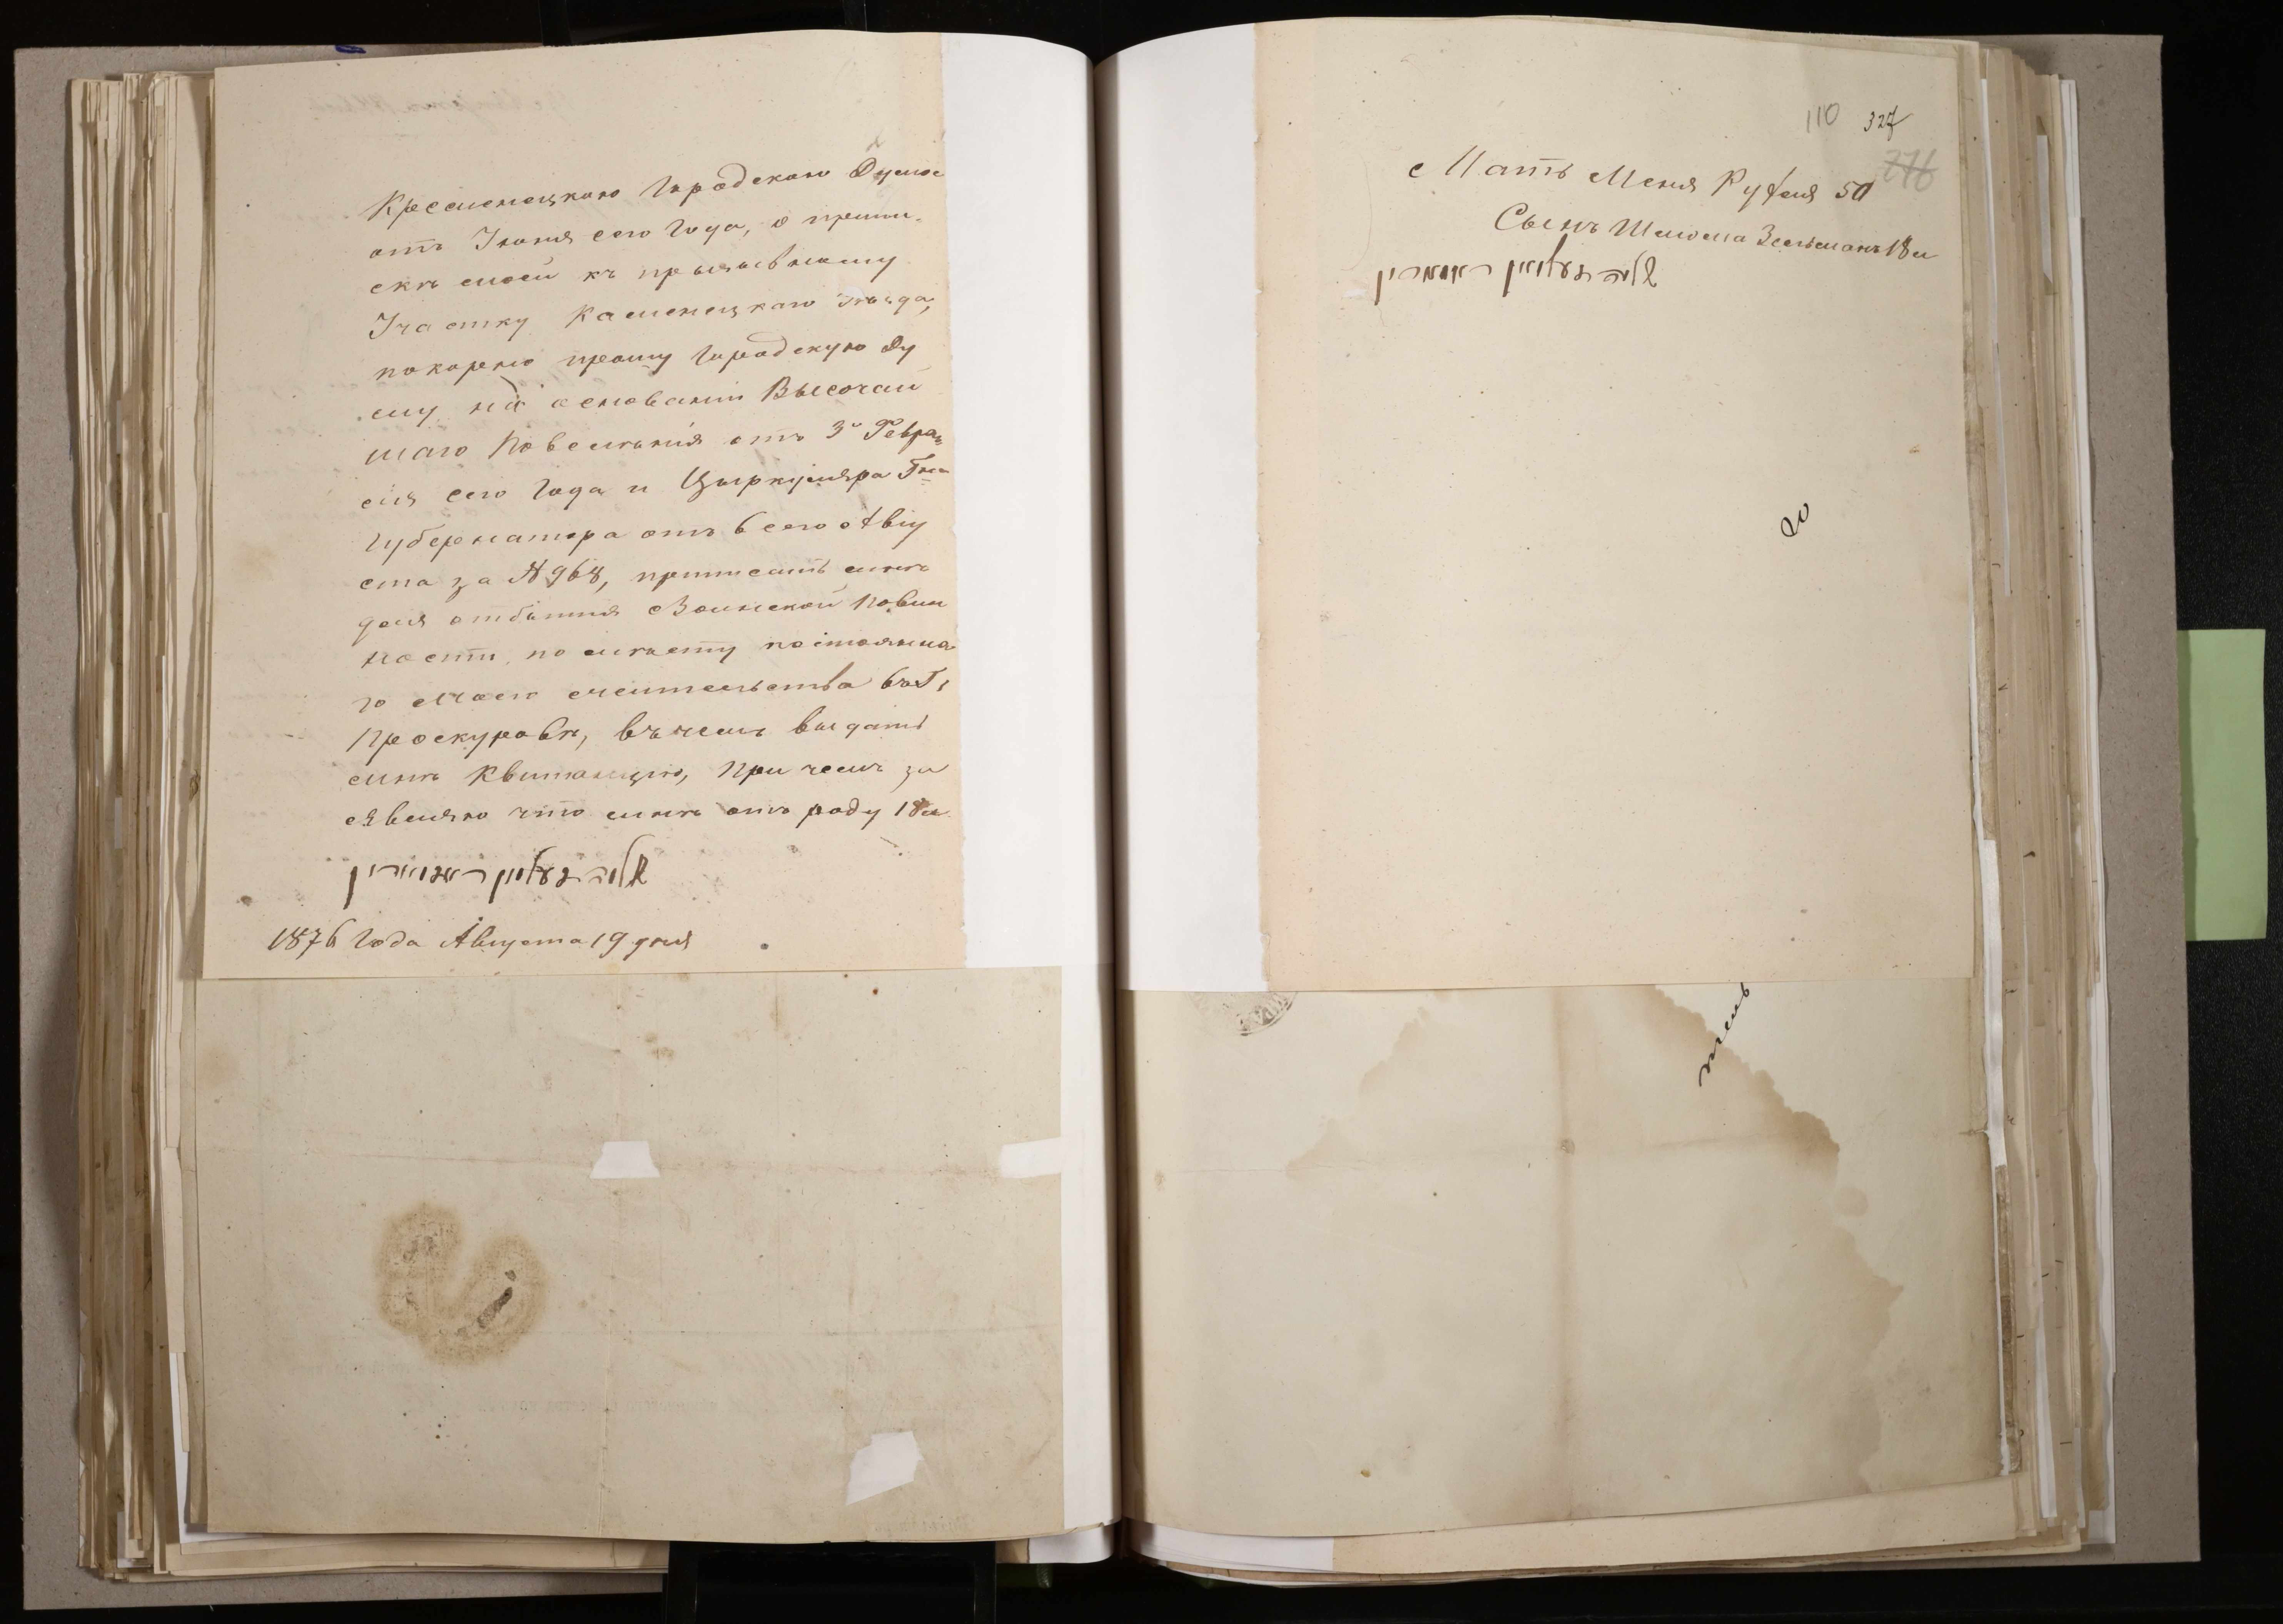 Кременецкою Городскою Думою
отъ Іюня сего года, о припи-
скѣ моей къ призывному
Участку Каменецкаго Уѣзда,
покорно прошу Городскую Ду
му на основаніи Высочай
шаго Повелѣнія отъ 3го Февра
ля сего года и Цыркуляра Гна
Губернатора отъ 6 сего Авгу
ста за № 968, приписать мнѣ
для отбытія Воинской Повин
ности, по мѣсту постоянна
го моего жительства въ Г.
Проскуровѣ, въ чемъ выдать
мнѣ Квитанцію, При чемъ за
являю что мнѣ отъ роду 18 л.
שלמה זעלמן
1876 года Августа 19 дня
110 327
276
Мать Меня Рухля 50
Сынъ Шлома Зельманъ 18 л
שלמה זעלמן